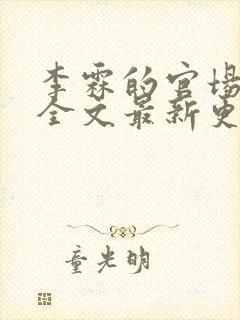 李霖的官场
全文最新更
童光明